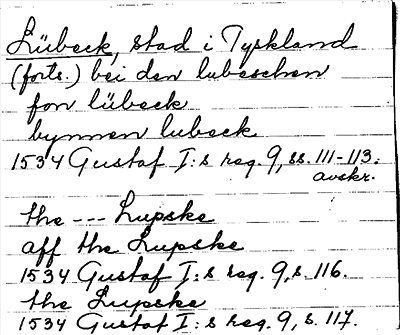 Lübeck, stad i Tyskland
(forts.) bei den lubeschen
fon lübeck
bynnen lubeck
1534 Gustaf I:s reg. 9, ss. 111-113.
avskr.
the --- Lupske
aff the Lupske
1534 Gustaf I:s reg. 9, s. 116.
the Lupske
1534 Gustaf I:s reg. 9, s. 117.